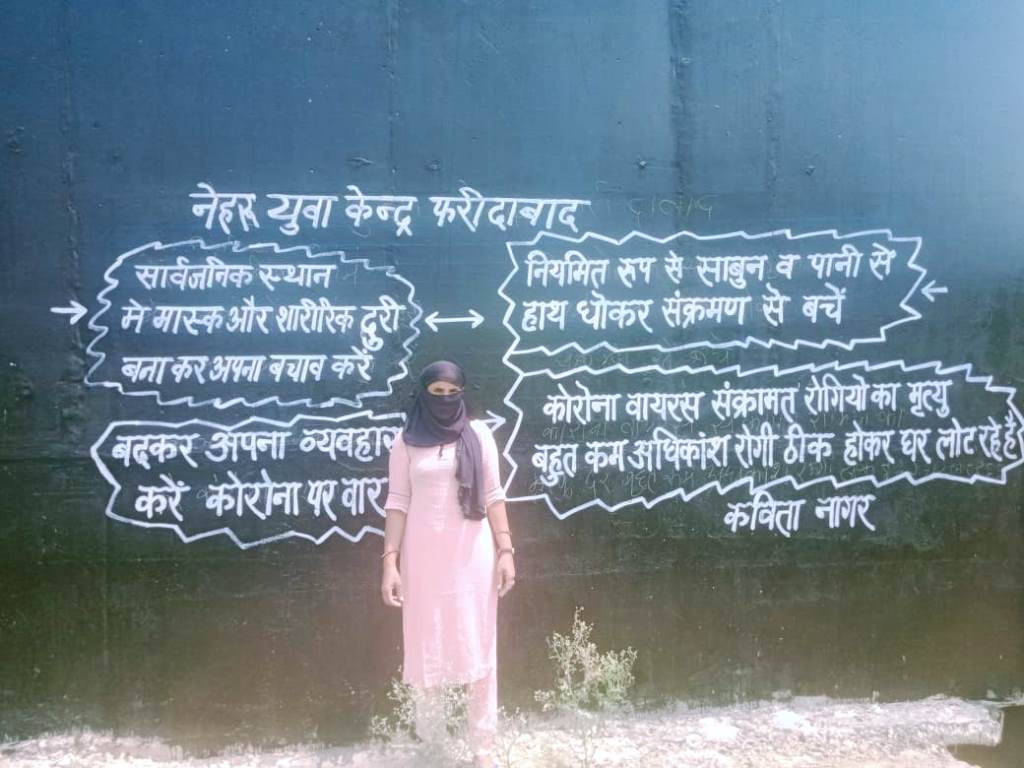 नेहरू युवा केन्द्र फरीदाबाद
सार्वजनिक स्थान
मे मास्क और शारीरिक दुरी
बना कर अपना बचाव करें
नियमित रूप से साबुन व पानी से
हाथ धोकर संक्रमण से बचें
बदकर अपना व्यवहार
करें कोरोना पर वार
कोरोना वायरस संक्रामत रोगियो का मृत्यु
बहुत कम अधिकांश रोगी ठीक होकर घर लोट रहे है
कविता नागर